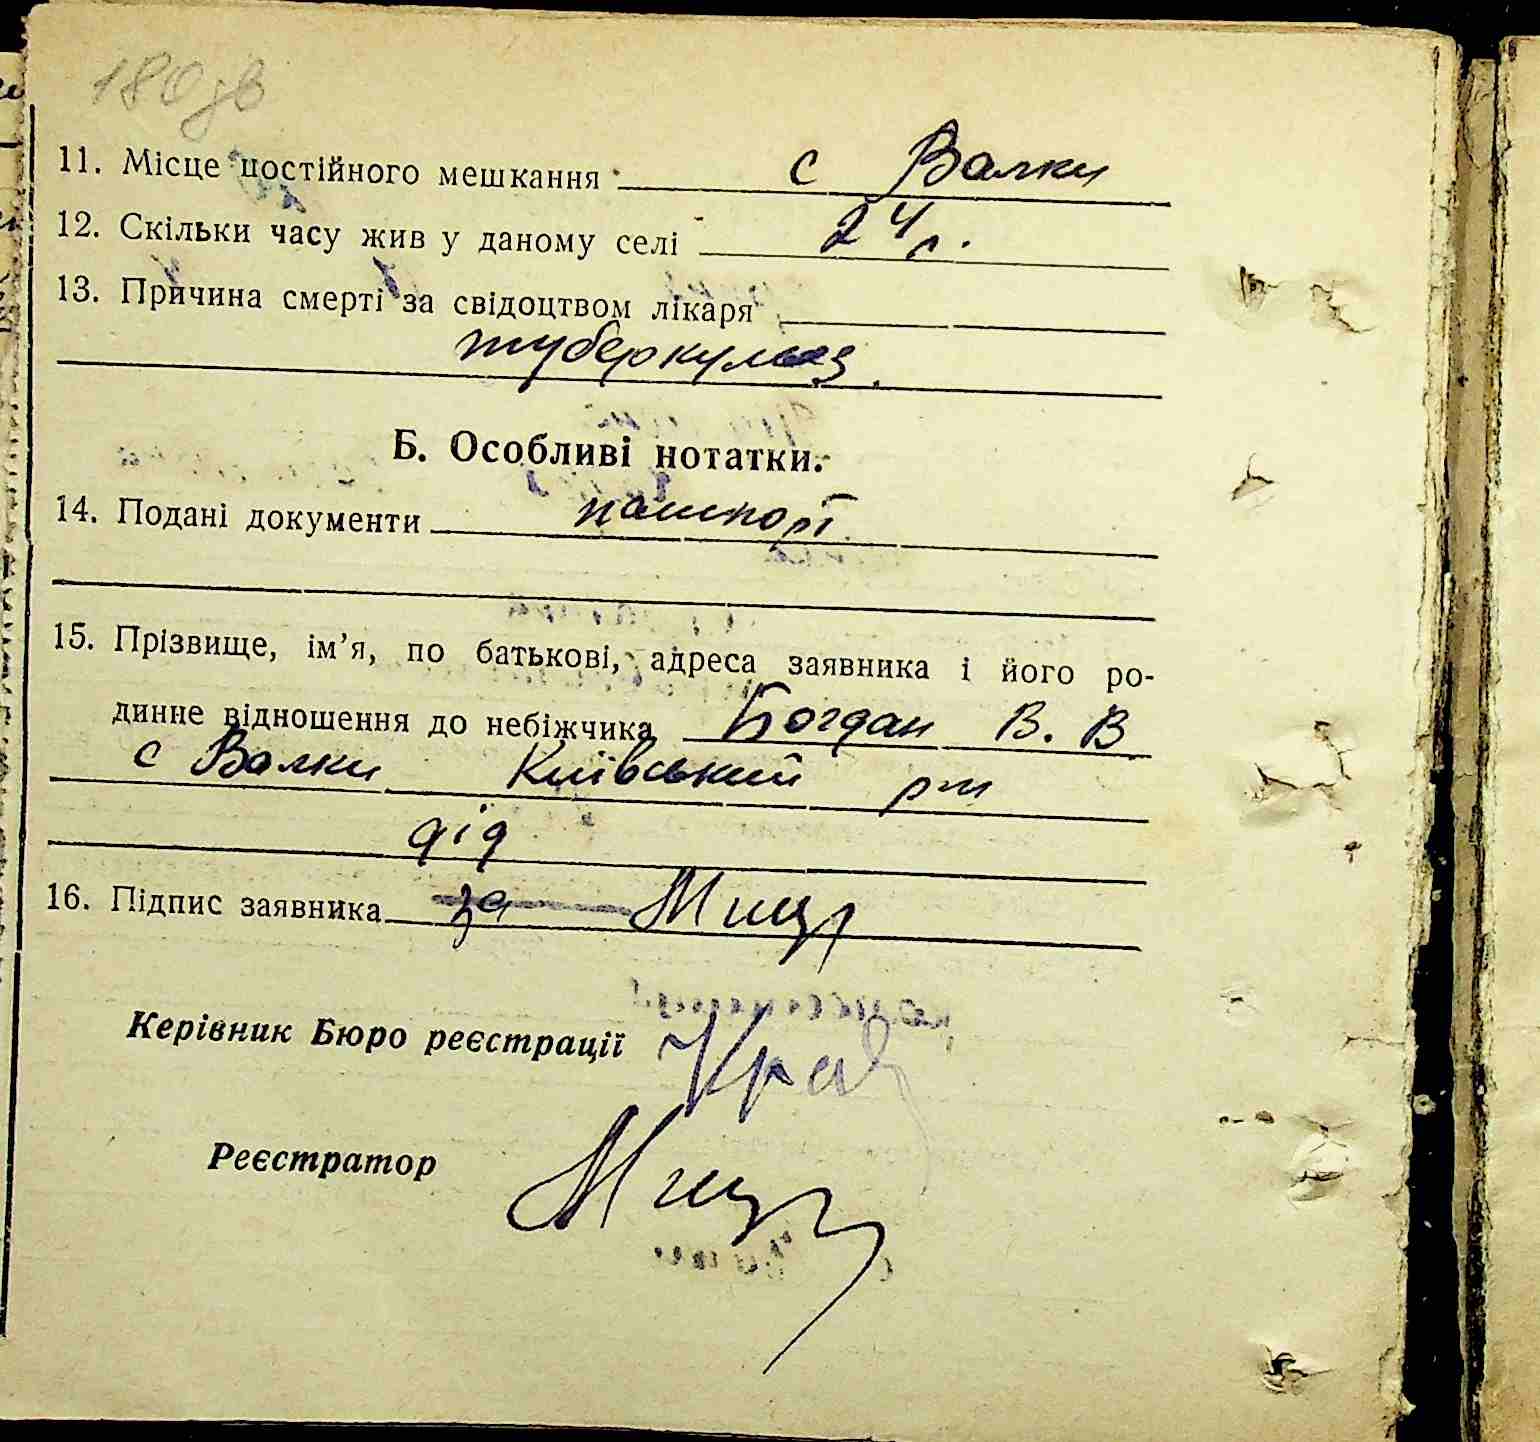 180 зв
11. Місце постійного мешкання с Валки
12. Скільки часу жив у даному селі 24 р.
13. Причина смерті за свідоцтвом лікаря
туберкульоз.
Б. Особливі нотатки.
14. Подані документи паспорт
15. Прізвище, ім’я, по батькові, адреса заявника і його ро-
динне відношення до небіжчика Богдан В. В
с Валки Київський р-н
дід
16. Підпис заявника за
Керівник Бюро реєстрації
Реєстратор